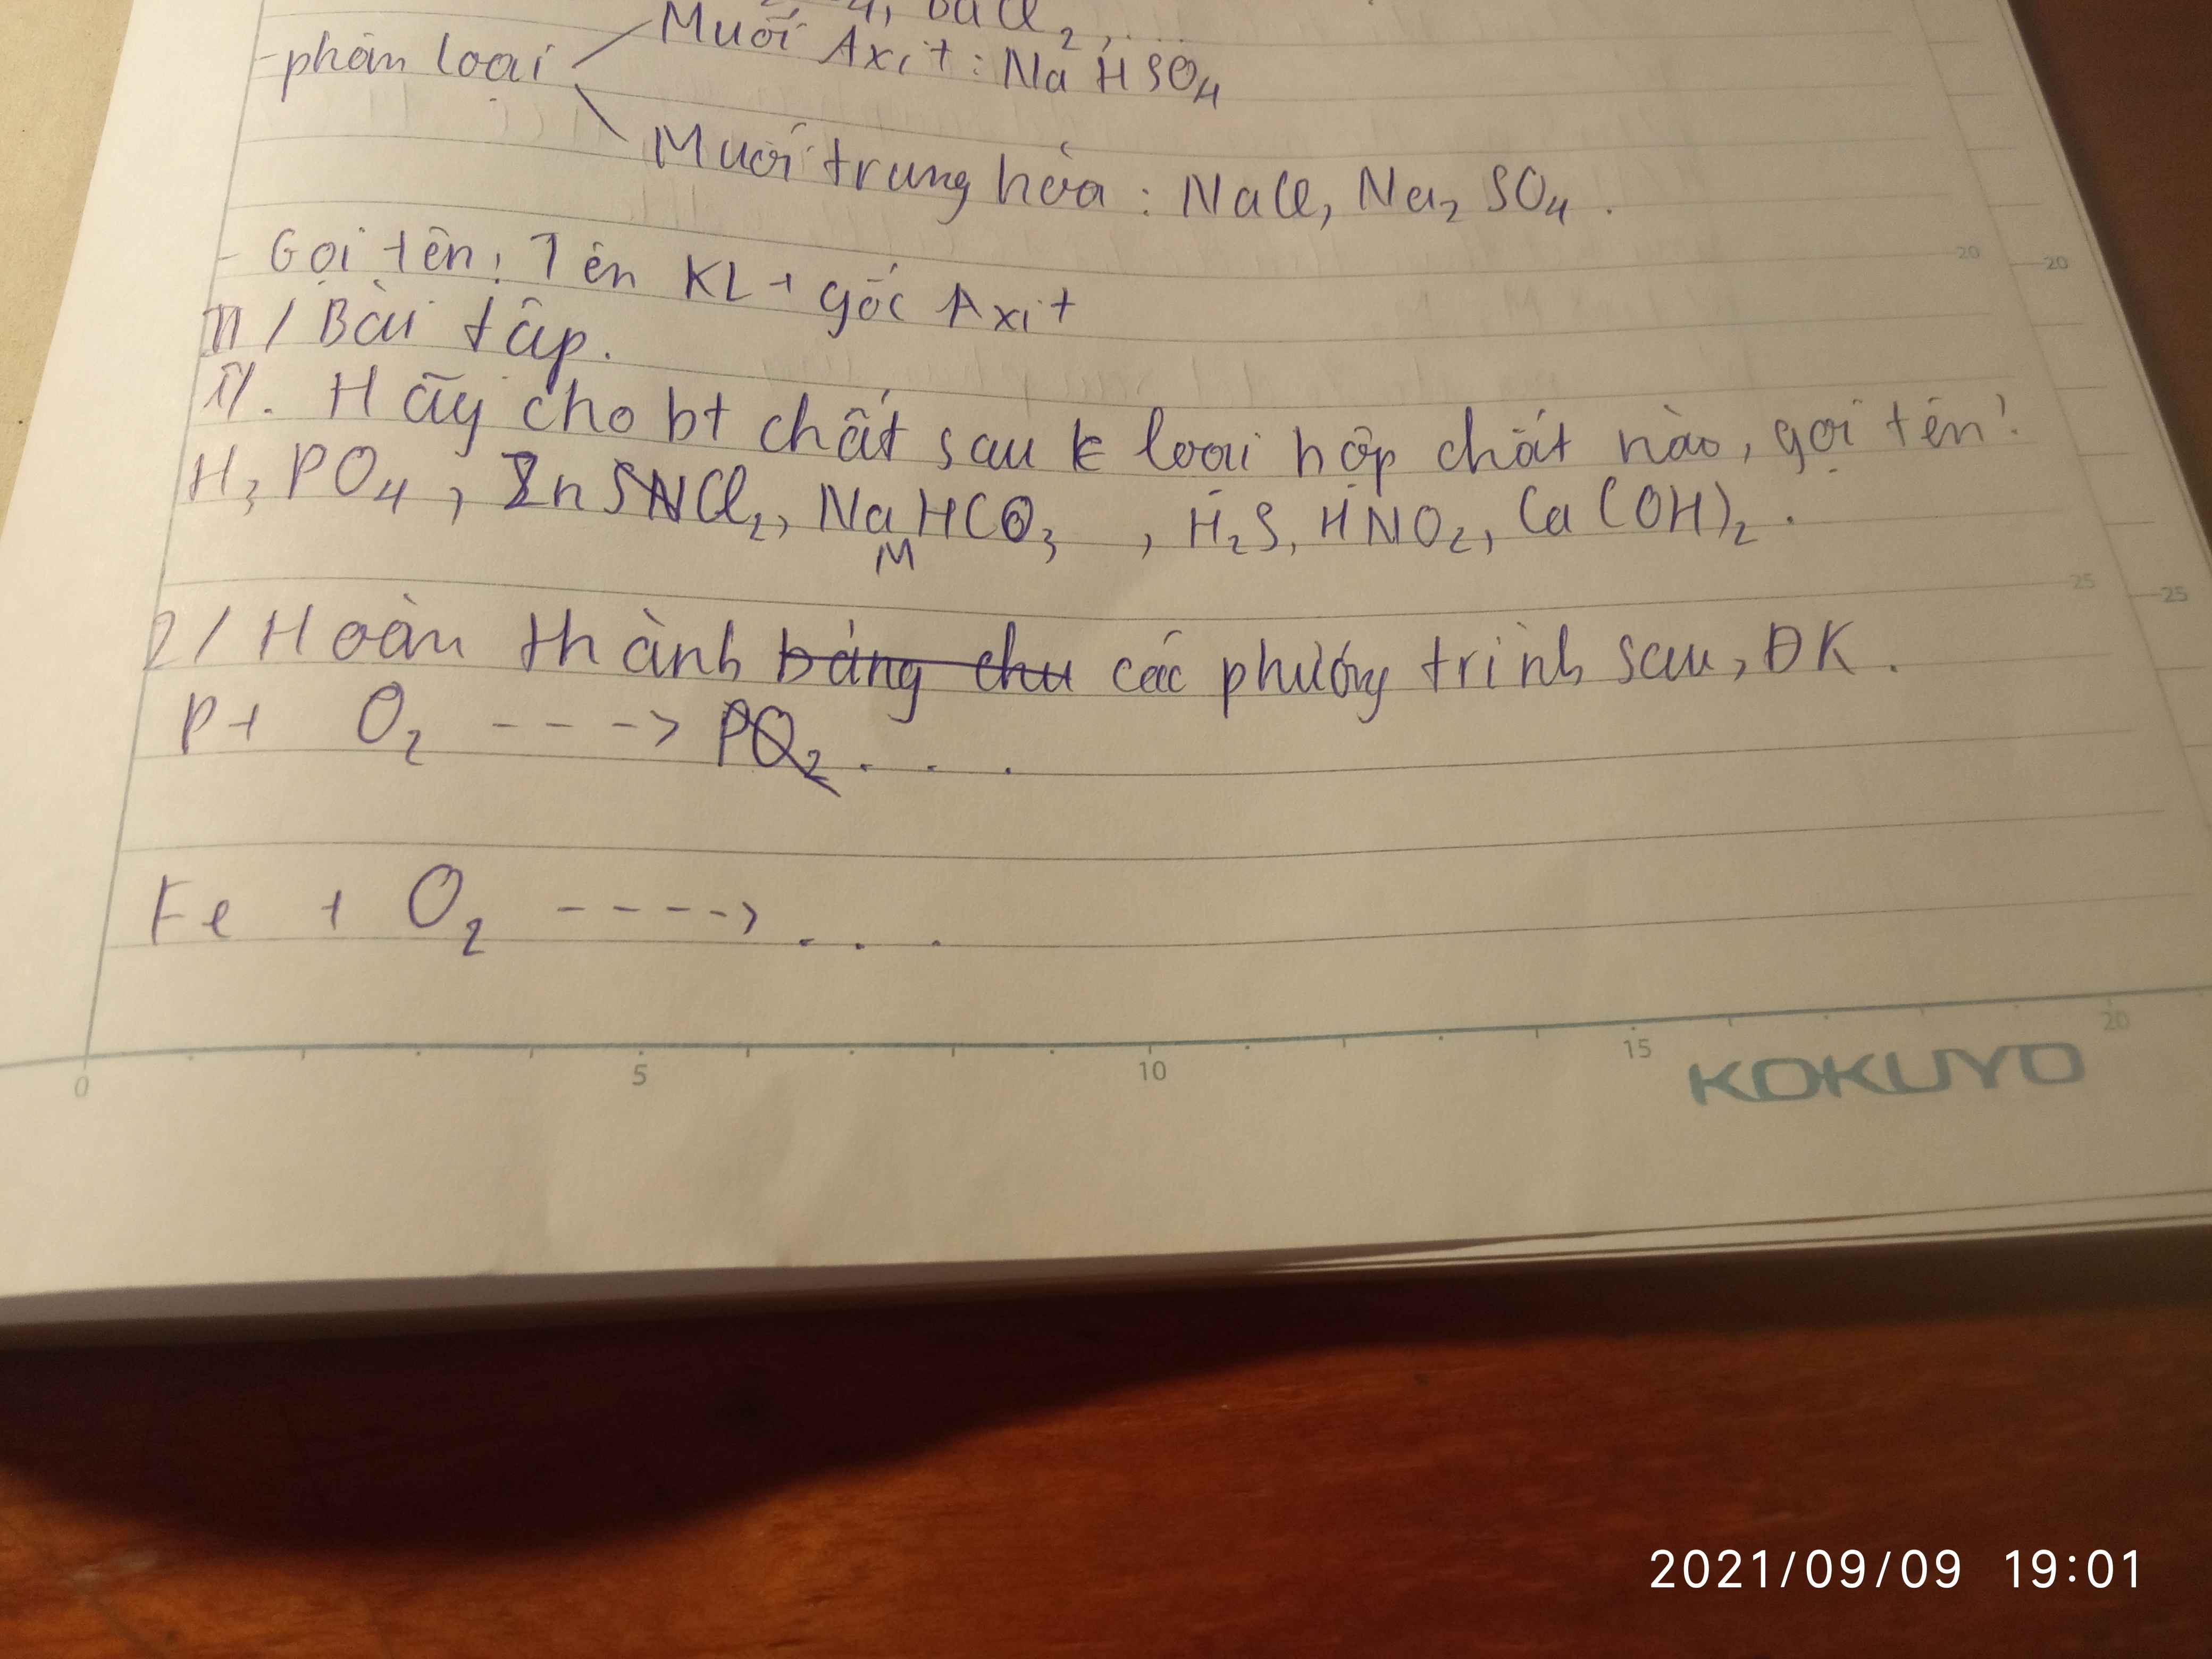 BaCl2, ...
-phân loại
Muối Axit : NaHSO4
Muối trung hòa : NaCl, Na2SO4.
- Gọi tên: Tên KL + gốc Axit
II / Bài tập.
1/. Hãy cho bt chất sau loại hợp chất nào, gọi tên!
H3PO4, ZnCl2, NaHCO3, H2S, HNO2, Ca(OH)2.
M
2/ Hoàn thành bảng chu các phương trình sau, ĐK.
P + O2 ----> PO2 . . .
Fe + O2 ----> . . .
20 20
25 25
0 5 10 15 20
KOKUYO
2021/09/09 19:01